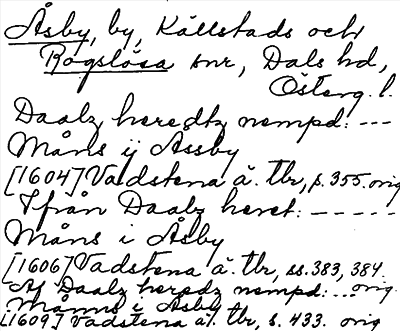 Åsby, by, Källstads och
Rogslösa snr, Dals hd,
Österg. l.
Daalz heredtz nempd: ---
Måns ij Åssby
[1604] Vadstena ä. tbr, s. 355. orig
Ifrån Daalz heret: -----
Måns i Åsby
[1606] Vadstena ä. tbr, ss. 383, 384.
orig.
Af Daalz heredz nempd: ...
Månns i Åsby
[1609] Vadstena ä. tbr, s. 433. orig